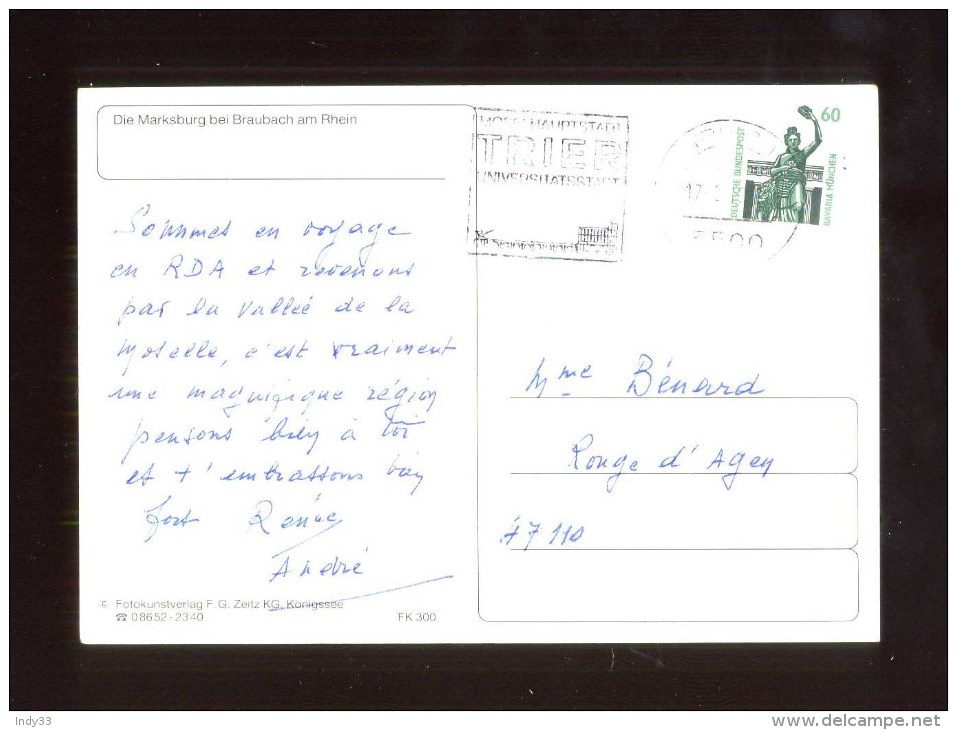 Die Marksburg bei Braubach am Rhein
MOSELHAUPTSTADT
TRIER
UNIVERSITÄTSSTADT
17
5500
60
DEUTSCHE BUNDESPOST
BAVARIA MÜNCHEN
Sommes en voyage
en RDA et revenons
par la vallée de la
Moselle, c'est vraiment
une magnifique région
pensons bien à toi
et t'embrassons bien
fort Renée
André
Mme Bénard
Rouge d'Agen
47110
© Fotokunstverlag F. G. Zeitz KG, Königssee
☎ 08652-2340 FK 300
Indy33
delcampe.net